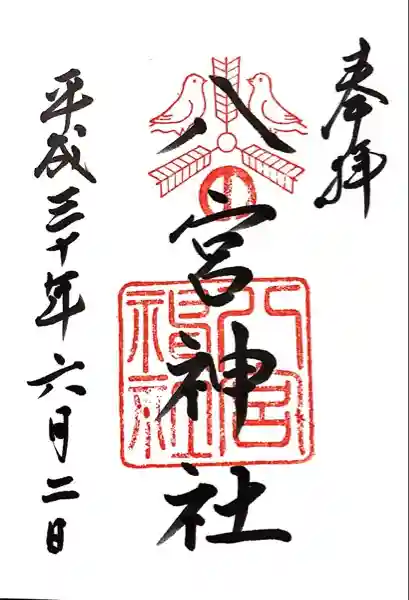 奉拝
八宮神社
八宮
神社
平成三十年六月二日